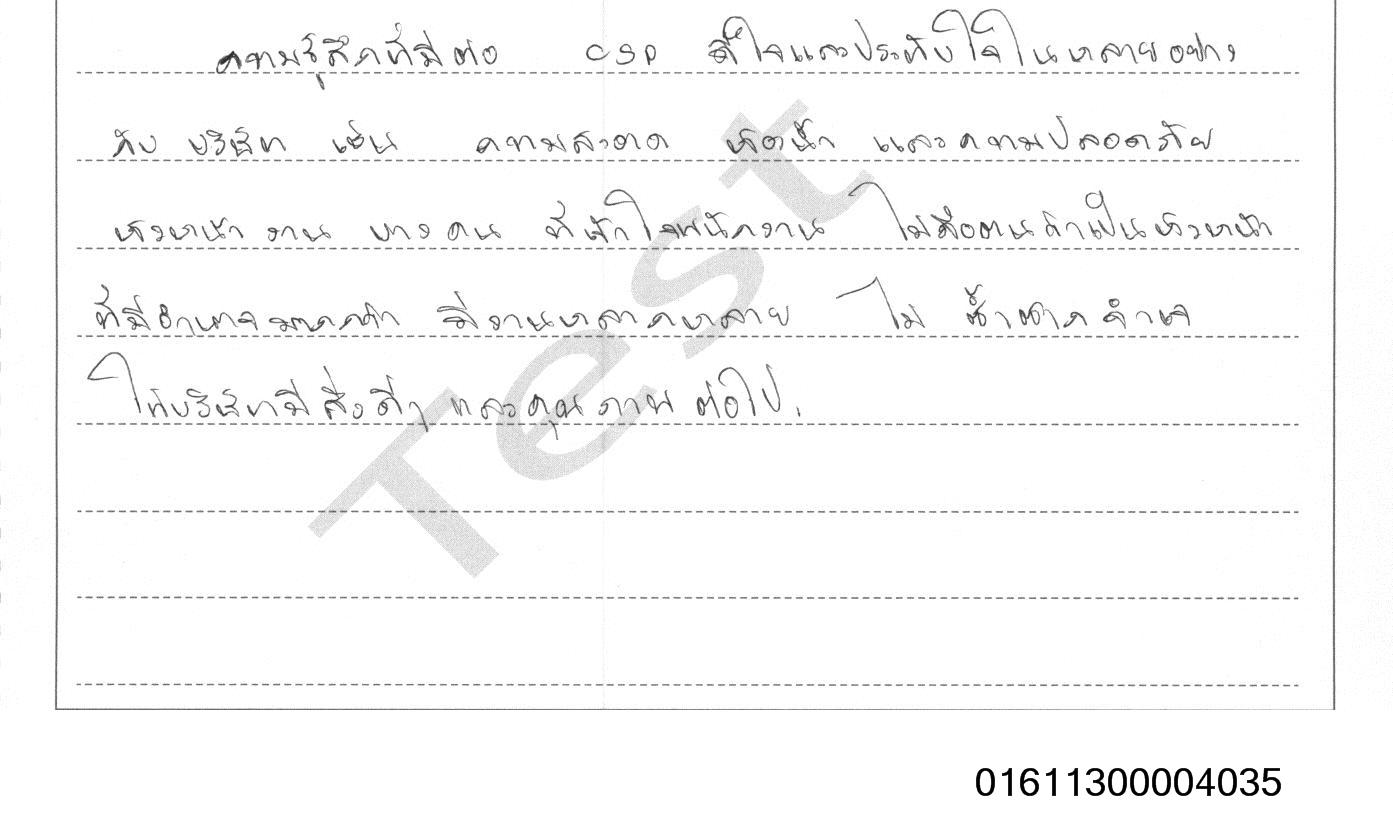 ความรู้สึกที่มีต่อ CSP ดีใจและประทับใจในหลายอย่าง
กับ บริษัท เช่น ความสะอาด ห้องน้ำ และความปลอดภัย
หัวหน้างาน บางคน ที่เข้าใจพนักงาน ไม่ถือตนว่าเป็นหัวหน้า
ที่มีอำนาจมากกว่า มีงานหลากหลาย ไม่ ซ้ำซากจำเจ
ให้บริษัทมีสิ่งดีๆ และคุณภาพ ต่อไป.
Test
01611300004035